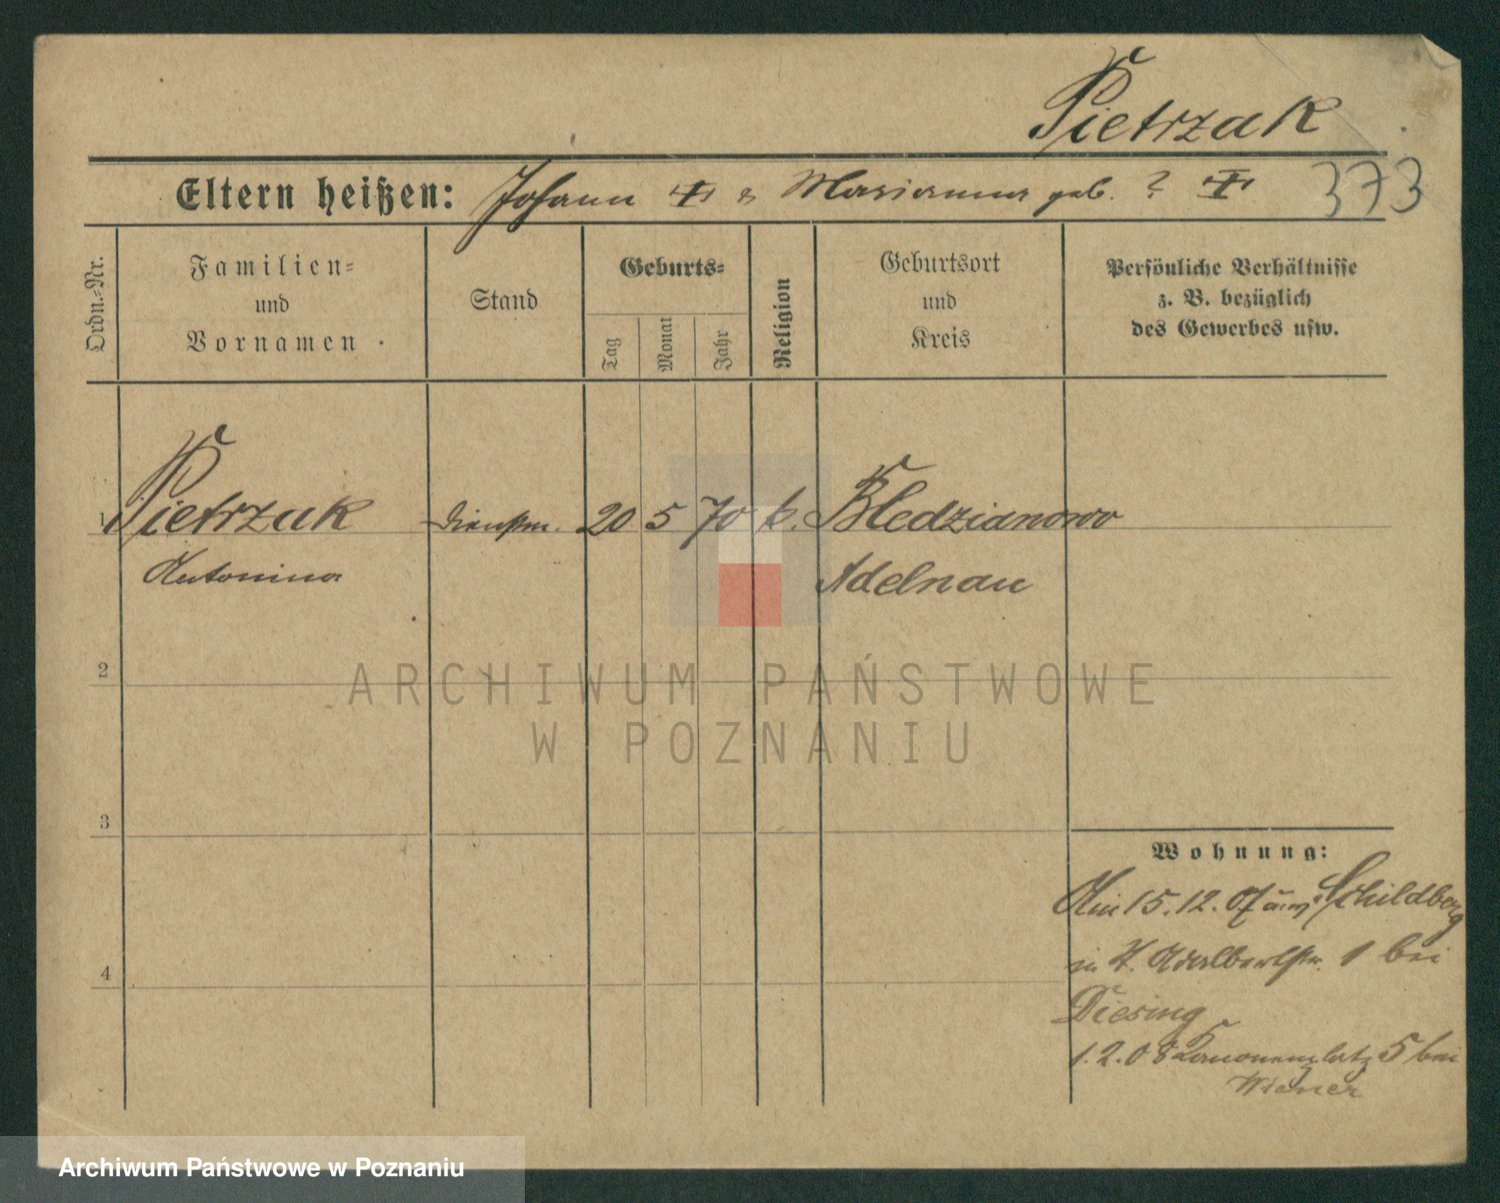 Pietrzak
Eltern heißen: Johann & Marianna geb. ?
373
Ordn.-Nr.
Familien=
und
Vornamen
Stand
Geburts=
Tag
Monat
Jahr
Religion
Geburtsort
und
Kreis
Persönliche Verhältnisse
z. B. bezüglich
des Gewerbes usw.
1 Pietrzak Dienstm. 20 5 70 k. Bledzianowo
Antonina Adelnau
2
ARCHIWUM PAŃSTWOWE
W POZNANIU
3
Wohnung:
15.12.07 Schildberg
Adalbertstr. 1 bei
4
Diesing
1.2.08 Kanonenplatz 5 bei
Wiener
Archiwum Państwowe w Poznaniu